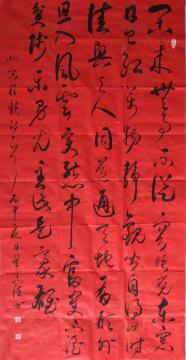 閑來無事不從容睡覺東窗
日已紅萬物靜觀皆自得四時
佳興與人同道通天地有形外
思入風雲變態中富貴不淫
貧賤樂男兒到此是豪雄